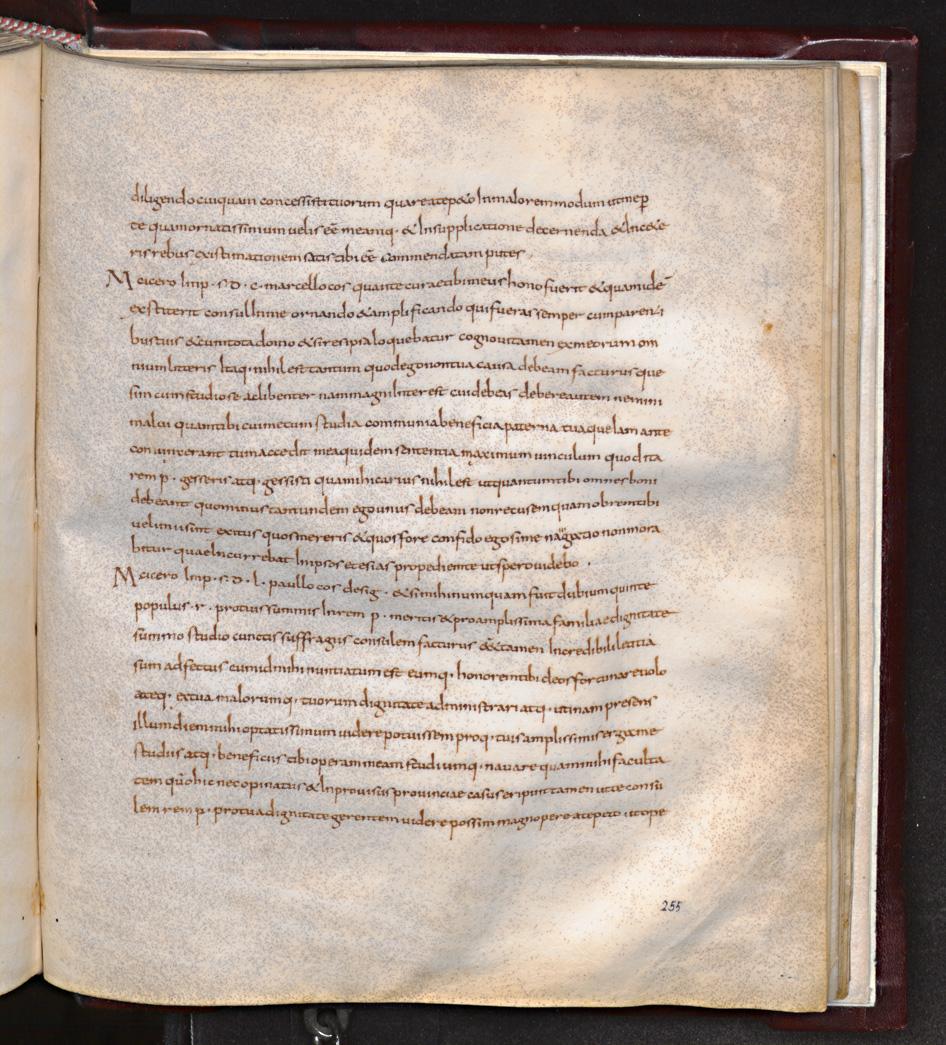 diligendo cuiquam concessisti tuorum quare a te peto Inmaiorem modum ut me p̲
te quam ornatissimum uelis eē meamq· & Insupplicatione decernenda & Incete
ris rebus existimationem satis tibi eē commendatam putes.
M cicero Imp· s· d· c· marcello cos quantae curae tibi meus hono fuerit & quam idē
exstiterit consul Inme ornando & amplificando qui fueras semper cum paren·i
bus tuis & cum tota domo & si res ipsa loquebatur cognoui tamen ex meorum om
nium litteris Itaq· nihil est tantum quod ego non tua causa debeam facturus que
sim cum studiose ac libenter nam magni Interest cui debeas debere autem nemini
malui quam tibi cui me cum studia communia beneficia paterna tuaque Iam ante
coniunxerant tum accedit mea quidem sententia maximum uinculum quod ita
rem p· gesseris atq· gessisti qua mihi carius nihil est ut quantum tibi omnes boni
debeant quominus tantundem ego unus debeam non recusem quamobrem tibi
uelim ii sint exitus quos mereris & quos fore confido ego si me nauigatio non mora
bitur quae Incurrebat Inipsos etesias propediem te ut spero uidebo.
M cicero Imp· s· d· l· paullo cos desig· & si mihi numquam fuit dubium quin te
populus· r· pro tuis summis Inrem p· meritis & pro amplissima familiae dignitate
summo studio cunctis suffragiis consulem facturus ēēt tamen Incredibili letitia
sum adfectus cum id mihi nuntiatum est eumq· honorem tibi deos fortunare uolo
ateq· ex tua maiorumq· tuorum dignitate administrari atq· utinam presens
illum diem mihi optatissimum uidere potuissem proq· tuis amplissimis erga me
studiis atq· beneficiis tibi operam meam studiumq· nauare quam mihi faculta
tem qūo hic necopinatus & Inprouisus prouinciae casus eripuit tamen ut te consu
lem rem p· pro tua dignitate gerentem uidere possim magno pere a te peto· ut ope
255